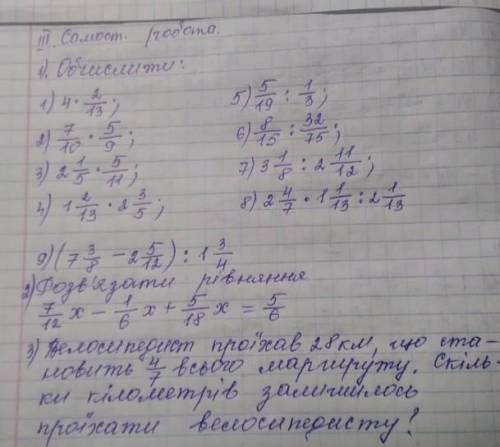 III. Самост. робота.
1). Обчислити:
1) 4 · 2/13;
5) 5/19 : 1/3;
2) 7/10 · 5/9;
6) 8/15 : 32/75;
3) 2 1/5 · 5/11;
7) 3 1/8 : 2 11/12;
4) 1 2/13 · 2 3/5;
8) 2 4/7 · 1 1/13 : 2 1/13
9) (7 3/8 − 2 5/12) : 1 3/4
2) Розв'язати рівняння
7/12 x − 1/6 x + 5/18 x = 5/6
3) Велосипедист проїхав 28 км, що ста-
новить 4/7 всього маршруту. Скіль-
ки кілометрів залишилось
проїхати велосипедисту?